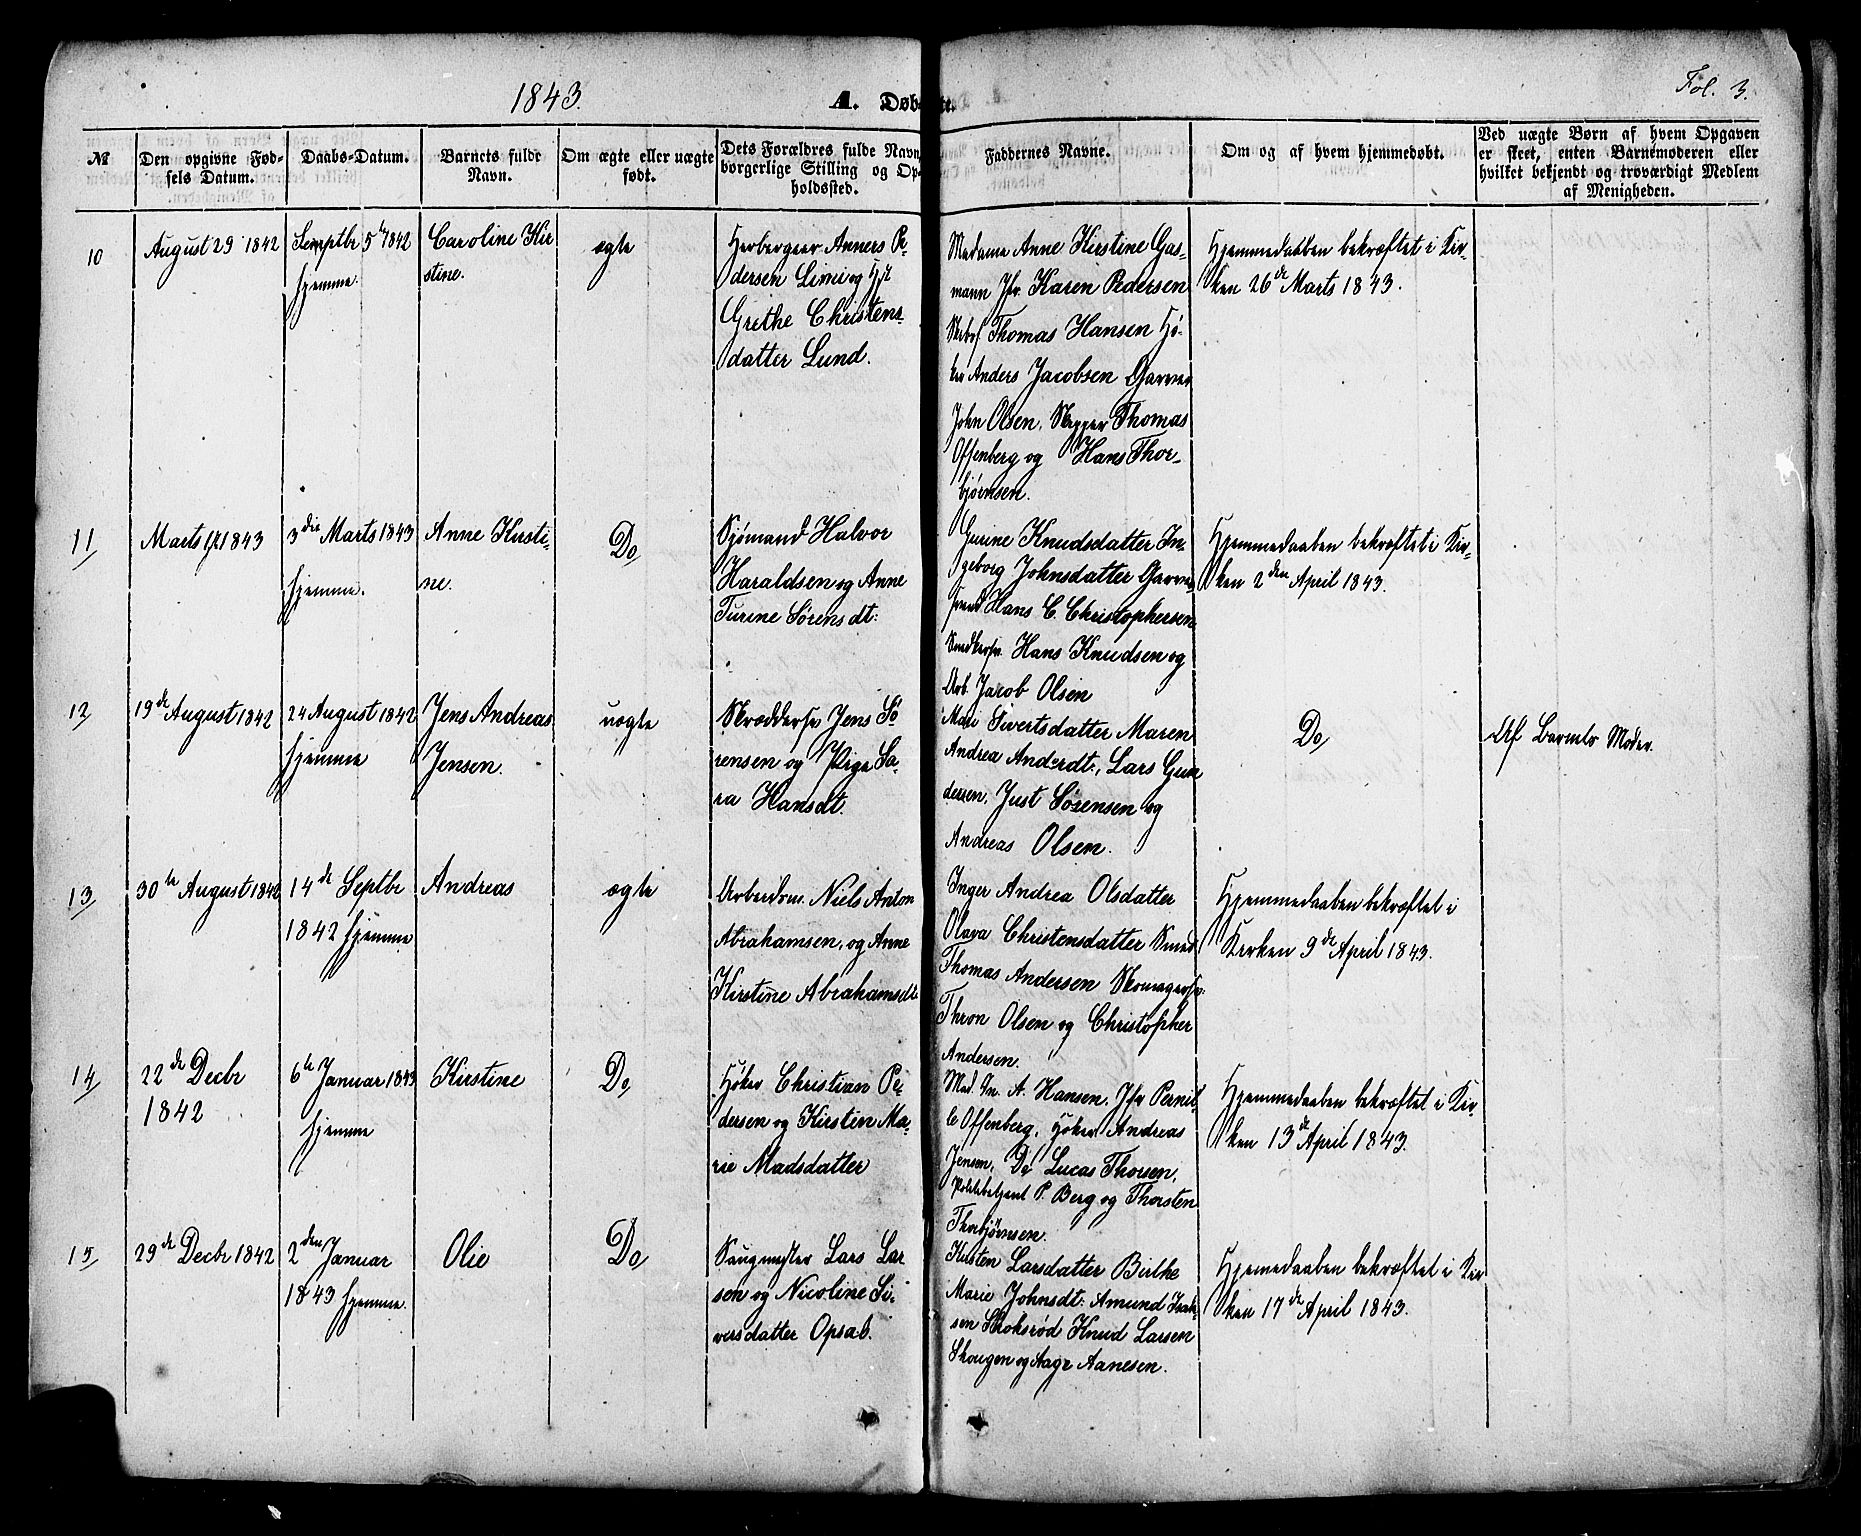 1843.
A. Døbte.
Fol. 3.
№
Den opgivne Fød-
sels Datum.
Daabs-Datum.
Barnets fulde
Navn.
Om ægte eller uægte
født.
Dets Forældres fulde Navn
borgerlige Stilling og Op-
holdssted.
Faddernes Navne.
Om og af hvem hjemmedøbt.
Ved uægte Børn af hvem Opgaven
er skeet, enten Barnemoderen eller
hvilket bekjendt og troværdigt Medlem
af Menigheden.
10
August 29 1842
Septbr 5te 1842
hjemme.
Caroline Kir
stine.
ægte
Anners Pe-
dersen Limi og
Grethe Christens-
datter Lund.
Madame Anne Kirstine Gas-
mann Jfr. Karen Pedersen
Thomas Hansen Hø-
ker Anders Jacobsen Garver
John Olsen, Skipper Thomas
Offenberg og Hans Thor-
bjørnsen.
Hjemmedaaben bekræftet i Kir-
ken 26de Marts 1843.
11
Marts 1843
3die Marts 1843
hjemme.
Anne Kirsti-
ne.
Do
Sjømand Halvor
Haraldsen og Anne
Turine Sørensdt:
Gurine Knudsdatter In-
geborg Johnsdatter Garver
svend Hans C. Christophersen
Hans Knudsen og
Arb. Jacob Olsen
Hjemmedaaben bekræftet i Kir-
ken 2den April 1843.
12
19de August 1842
24 August 1842
hjemme
Jens Andreas
Jensen.
uægte
Skræddersv. Jens Sø
rensen og Pige Sa-
ra Hansdt.
Mari Sivertsdatter Maren
Andrea Andersdt:, Lars Gun
dersen, Just Sørensen og
Andreas Olsen.
Do
Af Barnets Moder.
13
30te August 1842
14de Septbr
1842 hjemme
Andreas
ægte
Arbeidsm. Niels Anton
Abrahamsen, og Anne
Kirstine Abrahamsdt.
Inger Andrea Olsdatter
Olava Christensdatter Smed
Thomas Andersen Skomagersv.
Thron Olsen og Christopher
Andersen.
Hjemmedaaben bekræftet i
Kirken 9de April 1843.
14
22de Decbr
1842
6te Januar 1843
hjemme
Kirstine
Do
Høker Christian Pe-
dersen og Kirsten Ma-
rie Madsdatter
Mad. A. Hansen, Jfr Pernil-
le Offenberg, Høker Andreas
Jensen, Do Lucas Thorsen,
Politibetjent P. Berg og Thorsten
Thorbjørnsen.
Hjemmedaaben bekræftet i Kir
ken 13de April 1843.
15
29de Decbr 1842
2den Januar
1843 hjemme.
Olie
Do
Saugmester Lars Lar
sen og Nicoline Si-
versdatter Opsal.
Kirsten Larsdatter Birthe
Marie Johnsdt: Amund Isak-
sen Stoksrød Knud Larsen
Skougen og Aage Aanesen.
Hjemedaaben bekræftet i Kir
ken 17de April 1843.